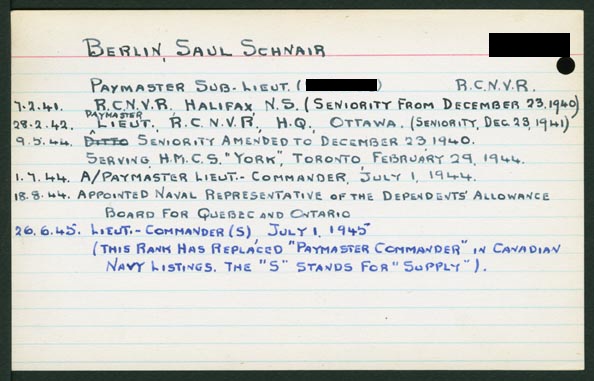 BERLIN, SAUL SCHNAIR
PAYMASTER SUB-LIEUT. ( ) R.C.N.V.R.
7.2.41. R.C.N.V.R. HALIFAX N.S. (SENIORITY FROM DECEMBER 23, 1940)
PAYMASTER
28.2.42. LIEUT., R.C.N.V.R., H.Q., OTTAWA. (SENIORITY, DEC. 23, 1941)
9.5.44. DITTO SENIORITY AMENDED TO DECEMBER 23, 1940.
SERVING H.M.C.S. "YORK", TORONTO, FEBRUARY 29, 1944.
1.7.44. A/PAYMASTER LIEUT.-COMMANDER, JULY 1, 1944.
18.8.44. APPOINTED NAVAL REPRESENTATIVE OF THE DEPENDENTS' ALLOWANCE
BOARD FOR QUEBEC AND ONTARIO
26.6.45. LIEUT.-COMMANDER (S), JULY 1, 1945
(THIS RANK HAS REPLACED "PAYMASTER COMMANDER" IN CANADIAN
NAVY LISTINGS. THE "S" STANDS FOR "SUPPLY").